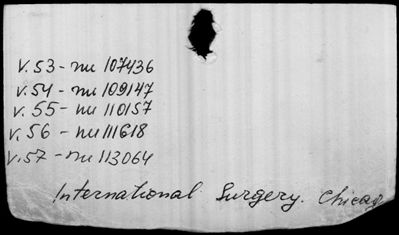 v. 53 - nu 107436
v. 54 - nu 109147
v. 55 - nu 110157
v. 56 - nu 111618
v. 57 - nu 113064
International Surgery. Chicag